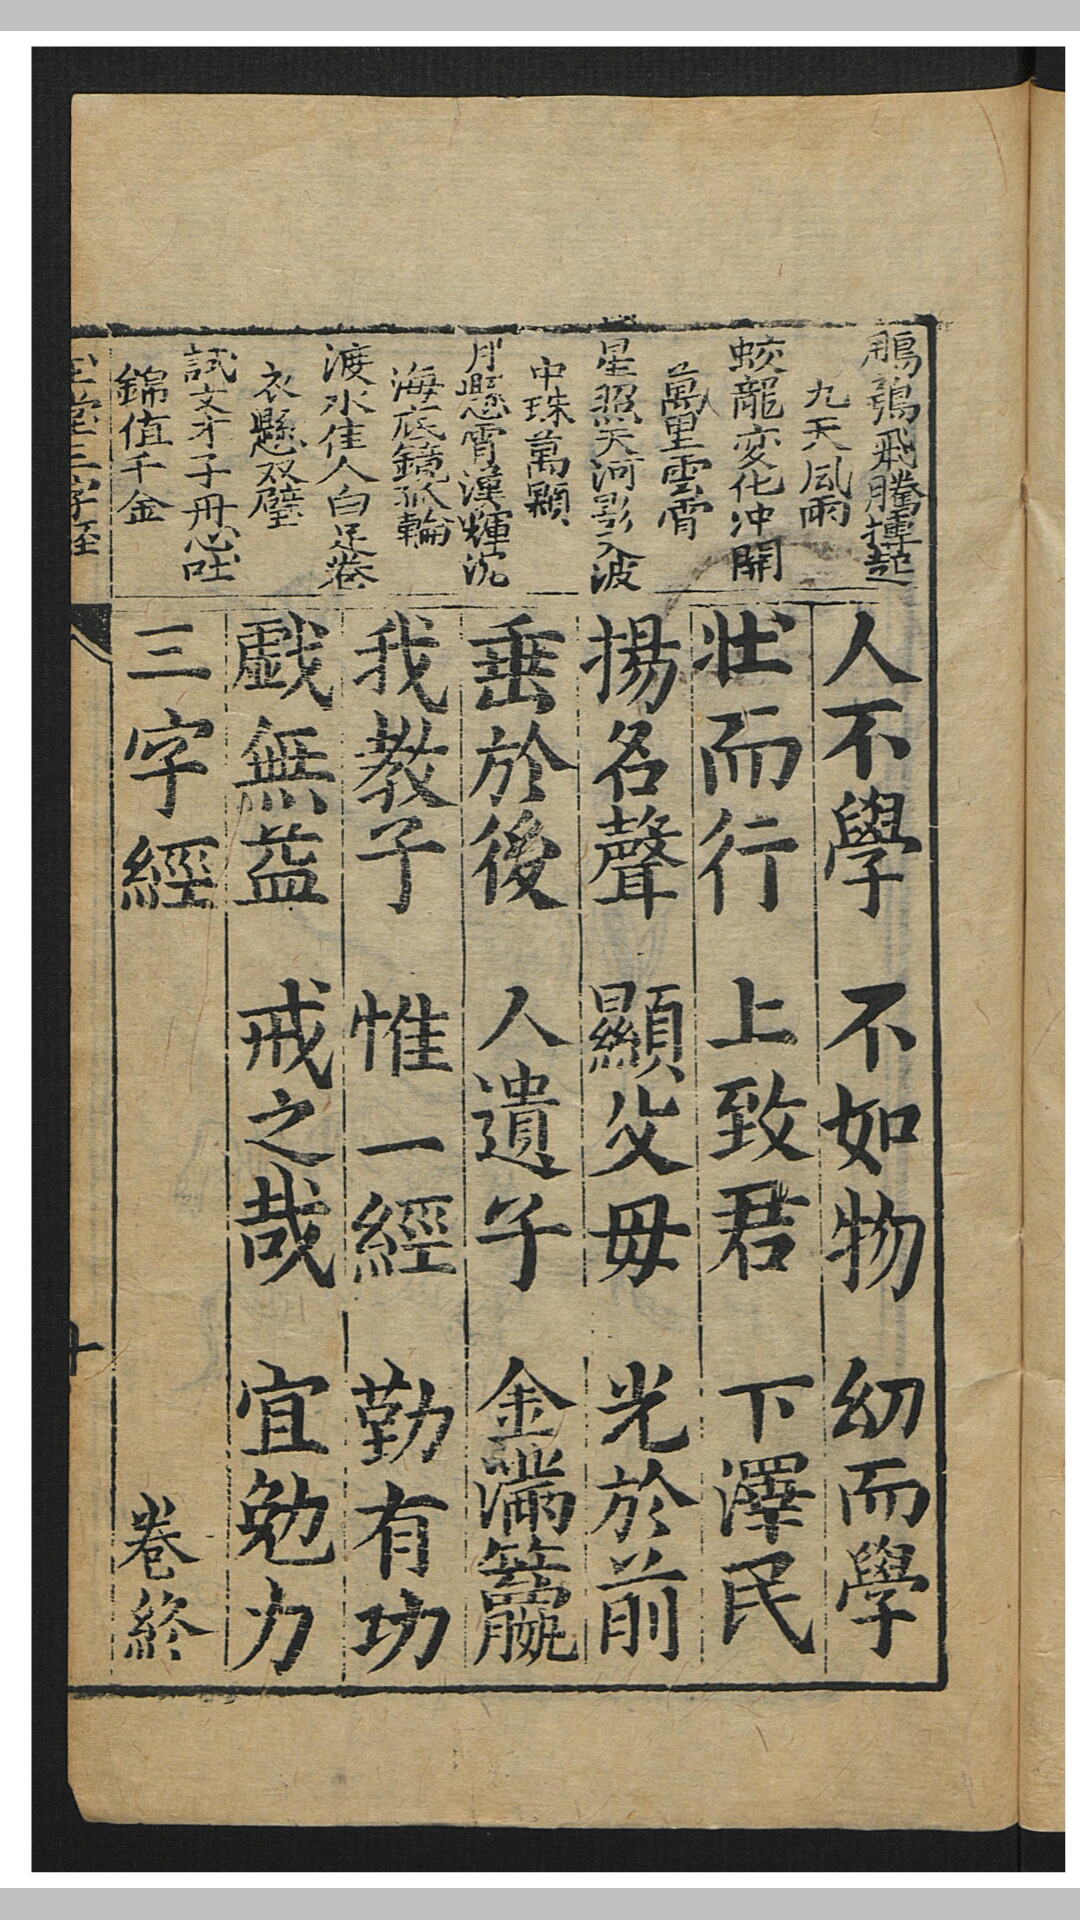 鵬鶚飛騰摶起
九天風雨
蛟龍变化冲開
萬里雲霄
星照天河影入波
中珠萬顆
月懸霄漢輝沉
海底鏡孤輪
渡水佳人白足卷
衣懸双璧
試文才子丹心吐
錦值千金
人不學 不如物 幼而學
壯而行 上致君 下澤民
揚名聲 顯父母 光於前
垂於後 人遺子 金滿籯
我教子 惟一經 勤有功
戯無益 戒之哉 宜勉力
三字經 卷終
堂三字經
十